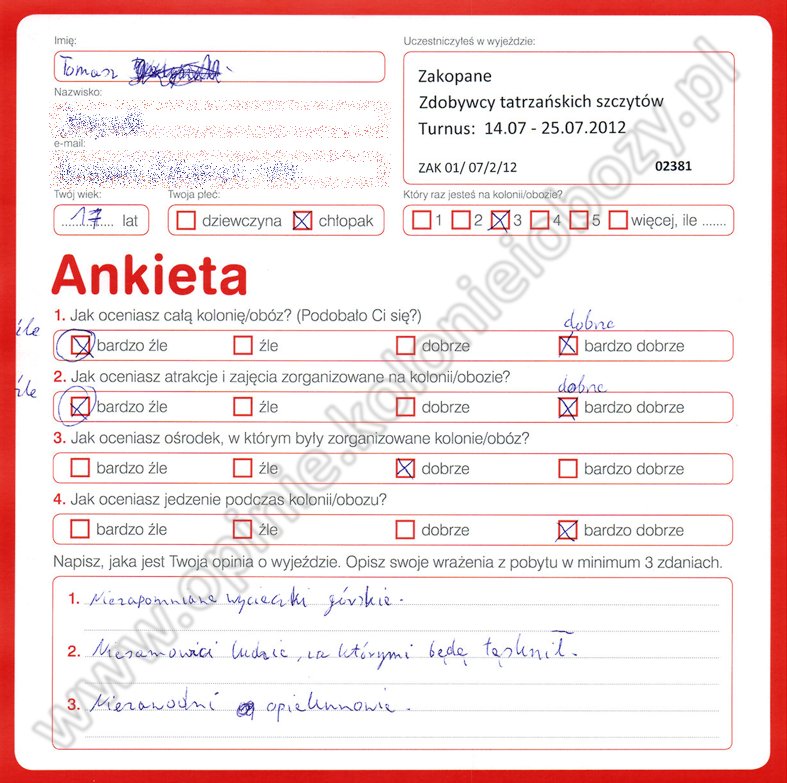 Imię:
Uczestniczyłeś w wyjeździe:
Tomasz
Zakopane
Zdobywcy tatrzańskich szczytów
Turnus: 14.07 - 25.07.2012
ZAK 01/ 07/2/12 02381
Nazwisko:
e-mail:
Twój wiek:
Twoja płeć:
Który raz jesteś na kolonii/obozie?
17 lat
dziewczyna chłopak
1 2 3 4 5 więcej, ile .......
Ankieta
1. Jak oceniasz całą kolonię/obóz? (Podobało Ci się?)
źle dobrze
bardzo źle źle dobrze bardzo dobrze
2. Jak oceniasz atrakcje i zajęcia zorganizowane na kolonii/obozie?
źle dobrze
bardzo źle źle dobrze bardzo dobrze
3. Jak oceniasz ośrodek, w którym były zorganizowane kolonie/obóz?
bardzo źle źle dobrze bardzo dobrze
4. Jak oceniasz jedzenie podczas kolonii/obozu?
bardzo źle źle dobrze bardzo dobrze
Napisz, jaka jest Twoja opinia o wyjeździe. Opisz swoje wrażenia z pobytu w minimum 3 zdaniach.
1. Niezapomniane wycieczki górskie.
2. Niesamowici ludzie, za którymi będę tęsknił.
3. Niezawodni opiekunowie.
www.opinie.kolonieiobozy.pl